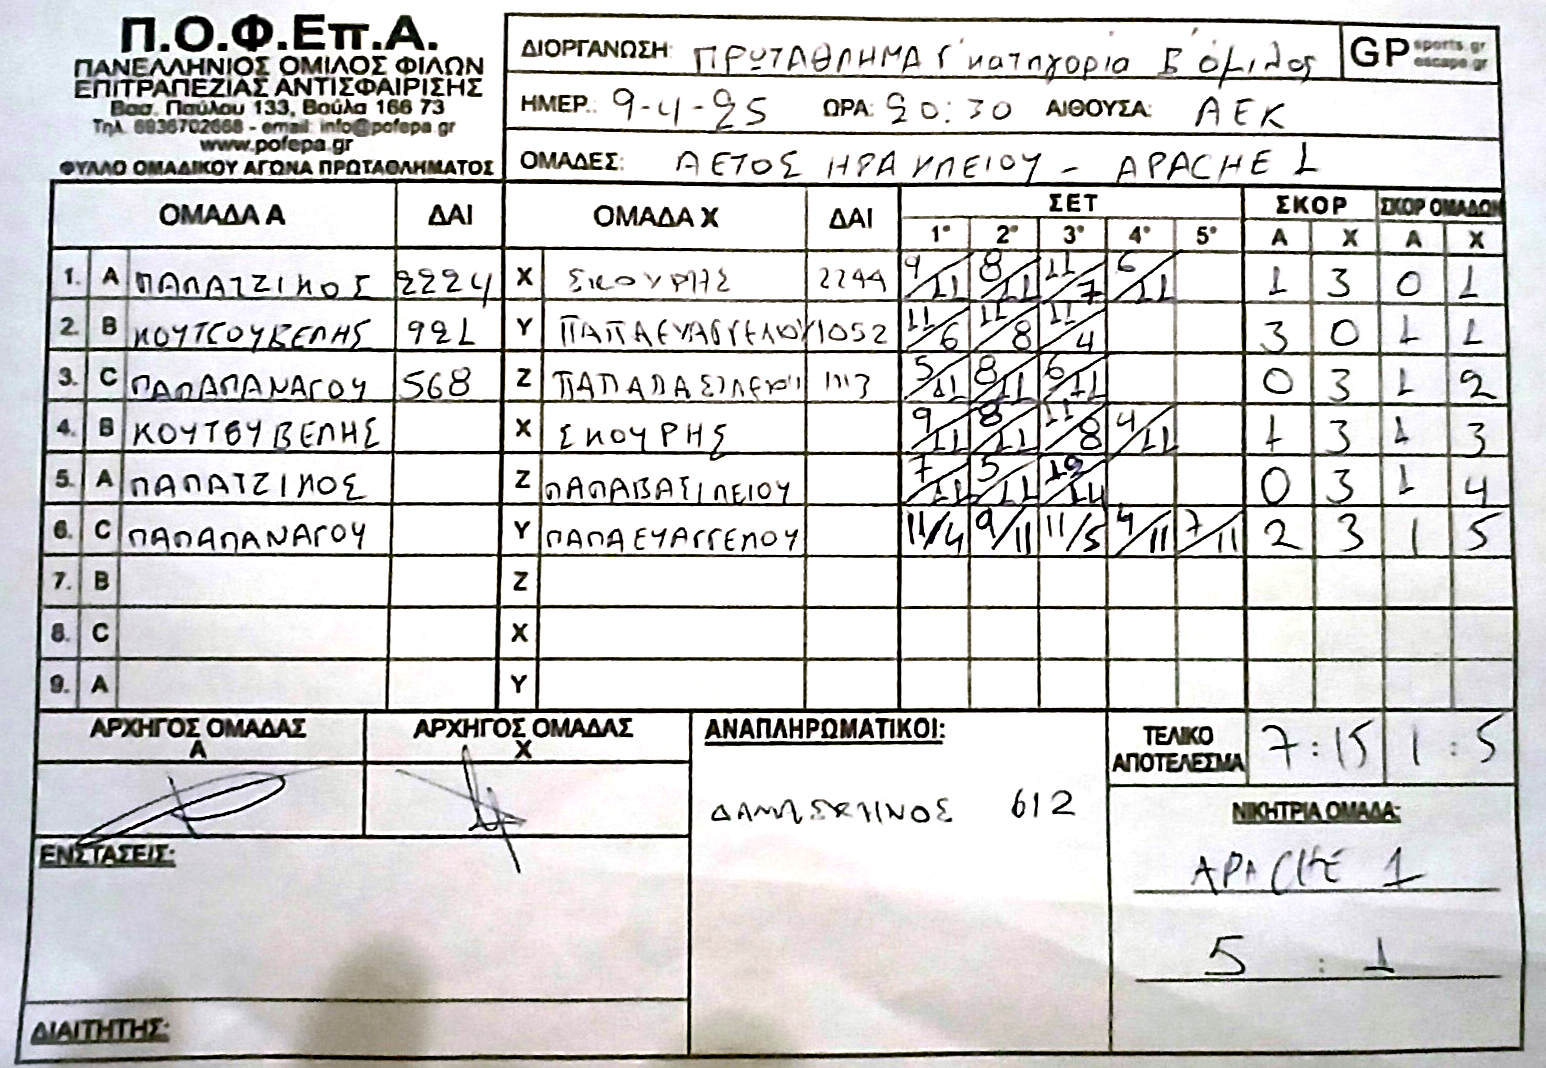 Π.Ο.Φ.Επ.Α.
ΠΑΝΕΛΛΗΝΙΟΣ ΟΜΙΛΟΣ ΦΙΛΩΝ
ΕΠΙΤΡΑΠΕΖΙΑΣ ΑΝΤΙΣΦΑΙΡΙΣΗΣ
Βασ. Παύλου 133, Βούλα 166 73
Τηλ. 6936702668 - email: info@pofepa.gr
www.pofepa.gr
ΦΥΛΛΟ ΟΜΑΔΙΚΟΥ ΑΓΩΝΑ ΠΡΩΤΑΘΛΗΜΑΤΟΣ
ΔΙΟΡΓΑΝΩΣΗ: ΠΡΩΤΑΘΛΗΜΑ Γ' κατηγορία Β' όμιλος
GP sports.gr escape.gr
ΗΜΕΡ.: 9-4-25 ΩΡΑ: 20:30 ΑΙΘΟΥΣΑ: ΑΕΚ
ΟΜΑΔΕΣ: ΑΕΤΟΣ ΗΡΑΚΛΕΙΟΥ - APACHE 1
ΟΜΑΔΑ Α ΔΑΙ ΟΜΑΔΑ Χ ΔΑΙ ΣΕΤ ΣΚΟΡ ΣΚΟΡ ΟΜΑΔΩΝ
1° 2° 3° 4° 5° Α Χ Α Χ
1. A ΠΑΠΑΤΖΙΚΟΣ 2224 X ΣΚΟΥΡΗΣ 2244 9/11 8/11 11/7 6/11 1 3 0 1
2. B ΚΟΥΤΣΟΥΒΕΛΗΣ 921 Y ΠΑΠΑΕΥΑΓΓΕΛΟΥ 1052 11/6 11/8 11/4 3 0 1 1
3. C ΠΑΠΑΠΑΝΑΓΟΥ 568 Z ΠΑΠΑΒΑΣΙΛΕΙΟΥ 1113 5/11 8/11 6/11 0 3 1 2
4. B ΚΟΥΤΣΥΒΕΛΗΣ X ΣΚΟΥΡΗΣ 9/11 8/11 11/8 4/11 1 3 1 3
5. A ΠΑΠΑΤΖΙΚΟΣ Z ΠΑΠΑΒΑΣΙΛΕΙΟΥ 7/11 5/11 12/14 0 3 1 4
6. C ΠΑΠΑΠΑΝΑΓΟΥ Y ΠΑΠΑΕΥΑΓΓΕΛΟΥ 11/4 9/11 11/5 4/11 7/11 2 3 1 5
7. B Z
8. C X
9. A Y
ΑΡΧΗΓΟΣ ΟΜΑΔΑΣ Α
ΑΡΧΗΓΟΣ ΟΜΑΔΑΣ Χ
ΑΝΑΠΛΗΡΩΜΑΤΙΚΟΙ:
ΔΑΜΑΣΚΗΝΟΣ 612
ΤΕΛΙΚΟ ΑΠΟΤΕΛΕΣΜΑ 7:15 1:5
ΝΙΚΗΤΡΙΑ ΟΜΑΔΑ:
APACHE 1
5 : 1
ΕΝΣΤΑΣΕΙΣ:
ΔΙΑΙΤΗΤΗΣ: